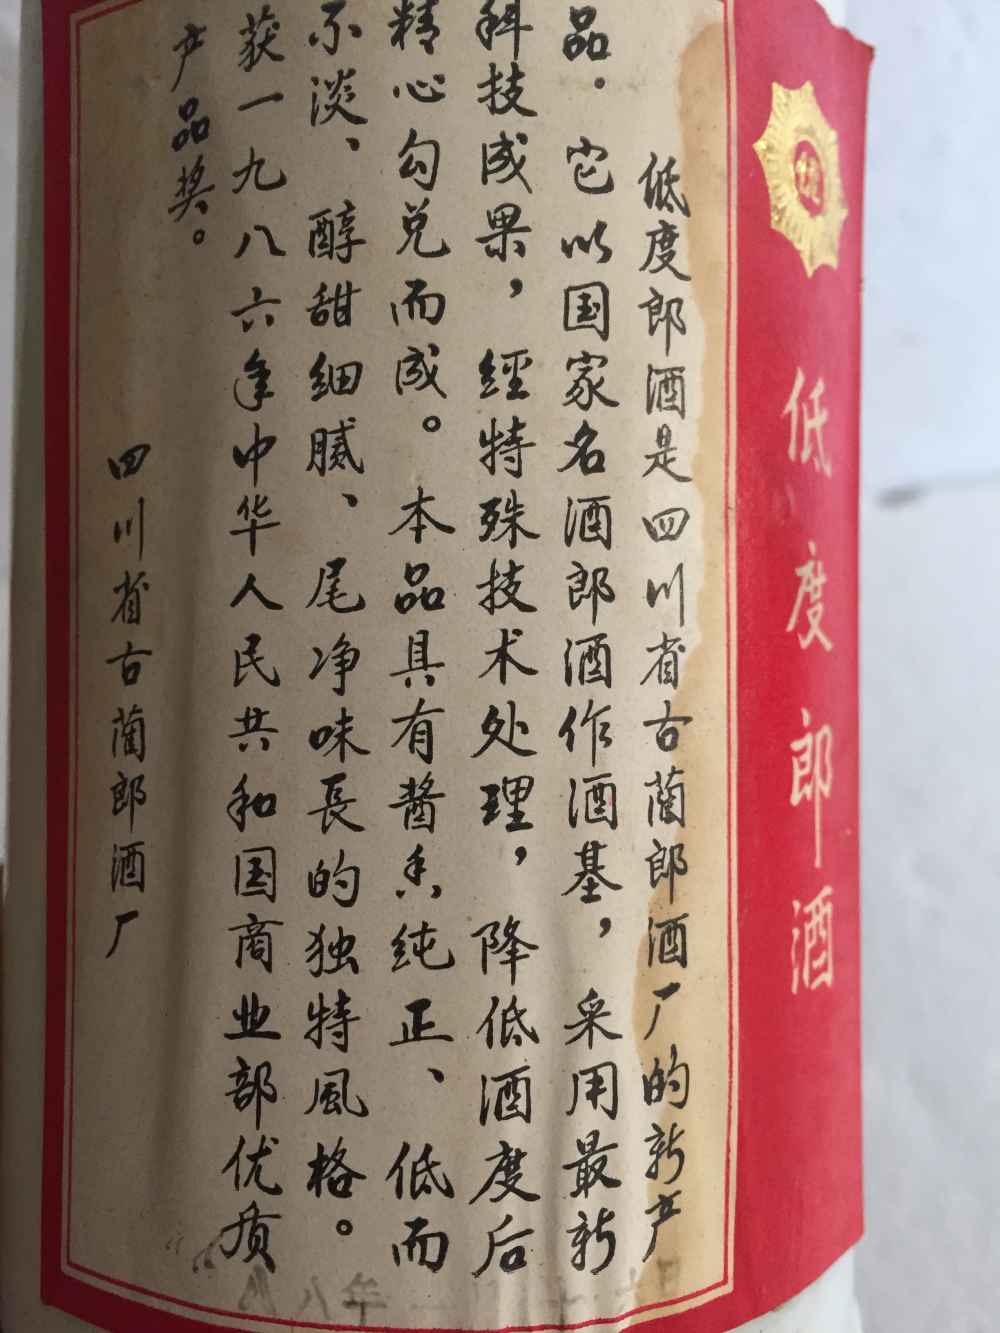 低度郎酒
低度郎酒是四川省古蔺郎酒厂的新产
品．它以国家名酒郎酒作酒基，采用最新
科技成果，經特殊技术处理，降低酒度后
精心勾兑而成。本品具有醬香纯正、低而
不淡、醇甜细腻、尾净味長的独特風格。
获一九八六年中华人民共和国商业部优质
产品奖。
四川省古蔺郎酒厂